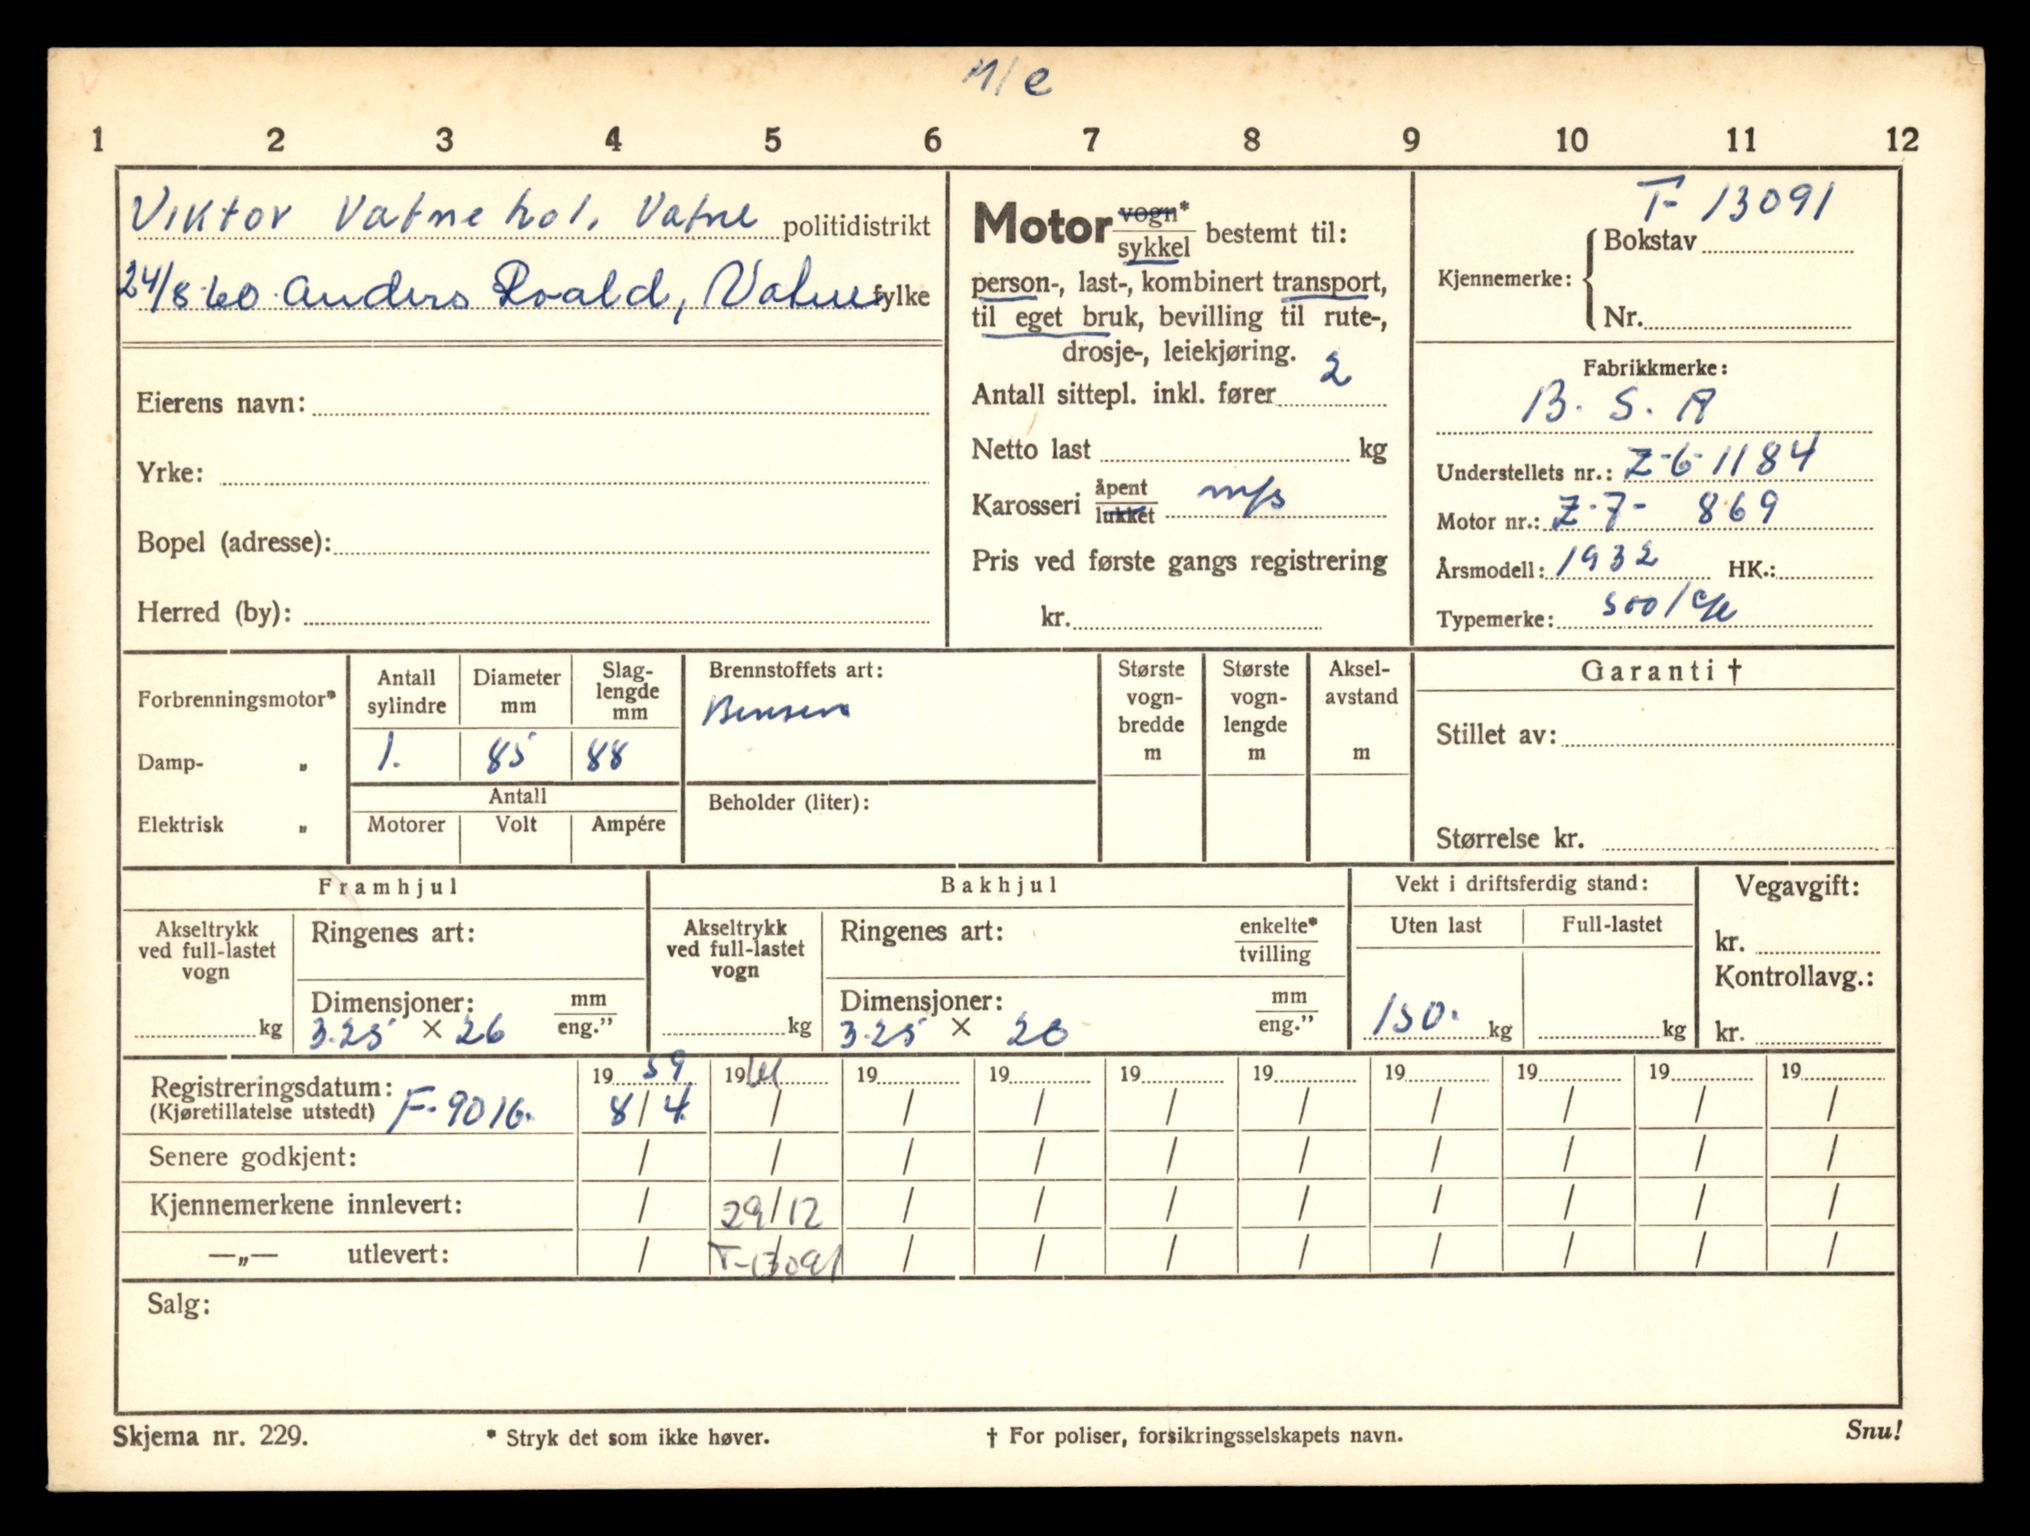 M/c
1 2 3 4 5 6 7 8 9 10 11 12
Viktor Vatnehol, Vatne politidistrikt
24/8-60. Anders Roald, Vatne fylke
Eierens navn:
Yrke:
Bopel (adresse):
Herred (by):
Motor vogn* sykkel bestemt til:
person-, last-, kombinert transport,
til eget bruk, bevilling til rute-,
drosje-, leiekjøring.
Antall sittepl. inkl. fører 2
Netto last kg
Karosseri åpent lukket
Pris ved første gangs registrering
kr.
T-13091
Kjennemerke: Bokstav
Nr.
Fabrikkmerke:
B. S. A
Understellets nr.: Z-6-1184
Motor nr.: Z-7- 869
Årsmodell: 1932 HK.:
Typemerke: 500/
Forbrenningsmotor*
Damp- „
Elektrisk „
Antall sylindre
Diameter mm
Slag-lengde mm
1. 85 88
Antall
Motorer Volt Ampére
Brennstoffets art:
Bensin
Beholder (liter):
Største vogn-bredde m
Største vogn-lengde m
Aksel-avstand m
Garanti †
Stillet av:
Størrelse kr.
Framhjul
Akseltrykk ved full-lastet vogn
kg
Ringenes art:
Dimensjoner: mm eng.”
3.25 × 26
Bakhjul
Akseltrykk ved full-lastet vogn
kg
Ringenes art: enkelte* tvilling
Dimensjoner: mm eng.”
3.25 × 26
Vekt i driftsferdig stand:
Uten last Full-lastet
150. kg kg
Vegavgift:
kr.
Kontrollavg.:
kr.
19 59 19 61 19 19 19 19 19 19 19 19
Registreringsdatum:
(Kjøretillatelse utstedt) F-9016. 8/4 / / / / / / / / /
Senere godkjent: / / / / / / / / / /
Kjennemerkene innlevert: / 29/12 / / / / / / / /
—„— utlevert: / T-13091 / / / / / / / /
Salg:
Skjema nr. 229. * Stryk det som ikke høver. † For poliser, forsikringsselskapets navn. Snu!